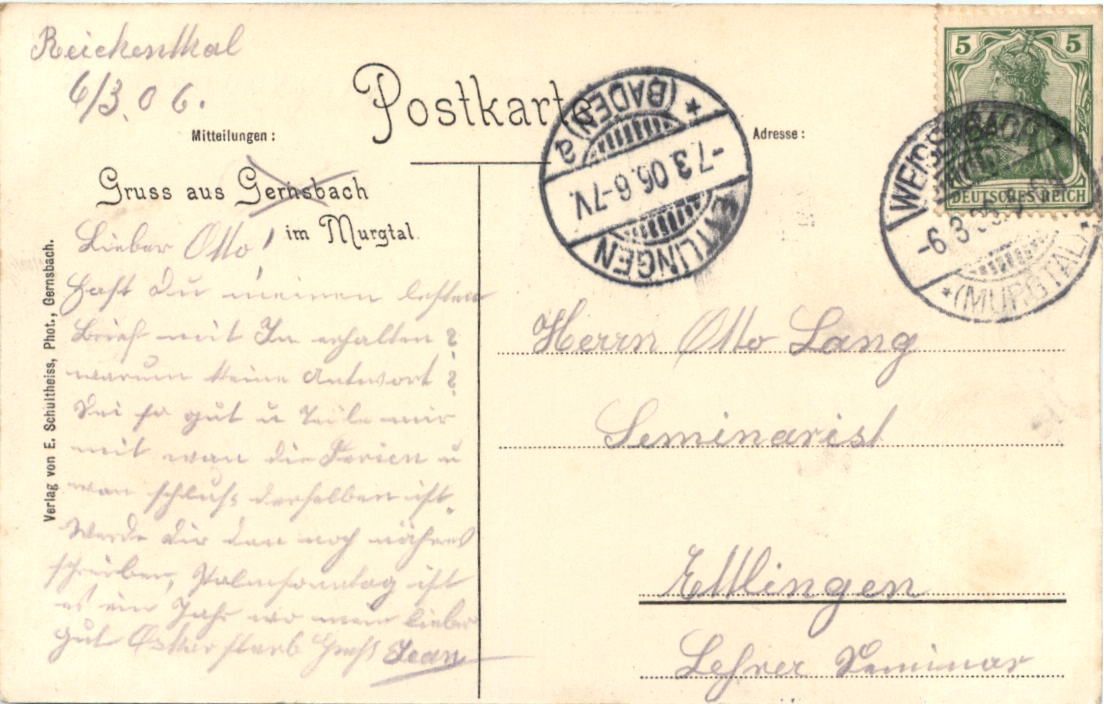 Reichenthal
6/3.06.
Postkarte
Mitteilungen :
Adresse :
Gruss aus Gernsbach
im Murgtal.
Lieber Otto!
Hast Du meinen letzten
Brief mit erhalten?
warum keine Antwort?
Sei so gut u Teile mir
mit wan die Ferien u
wan schluß derselben ist.
Werde Dir dan noch näheres
schreiben, Palmsonntag ist
es ein Jahr wo mein lieber
gut starb Gruß Jean
Verlag von E. Schultheiss, Phot., Gernsbach.
Herrn Otto Lang
Seminarist
Ettlingen
Lehrer Seminar
ETTLINGEN
-7.3.06.6-7V.
(BADEN) a
5 5
DEUTSCHES REICH
WEISENBACH
-6.3.
*(MURGTAL)*